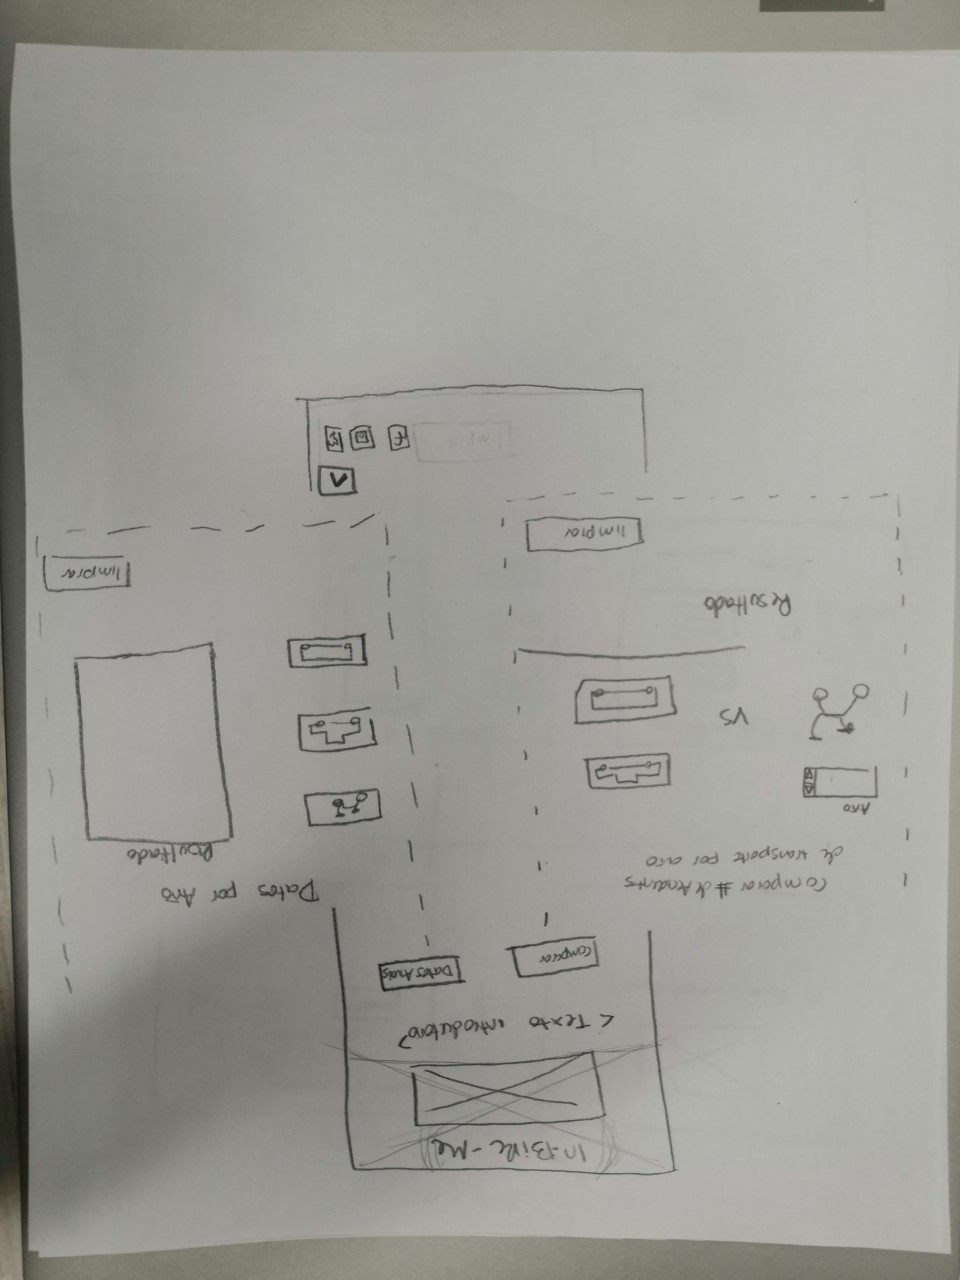 In-Bike-Me
< Texto introductorio>
Comparar
Datos Anuals
Comparar # de Accidentes
de transporte por año
Año
VS
Resultado
limpiar
Datos por Año
Resultado
limpiar
limpiar
f